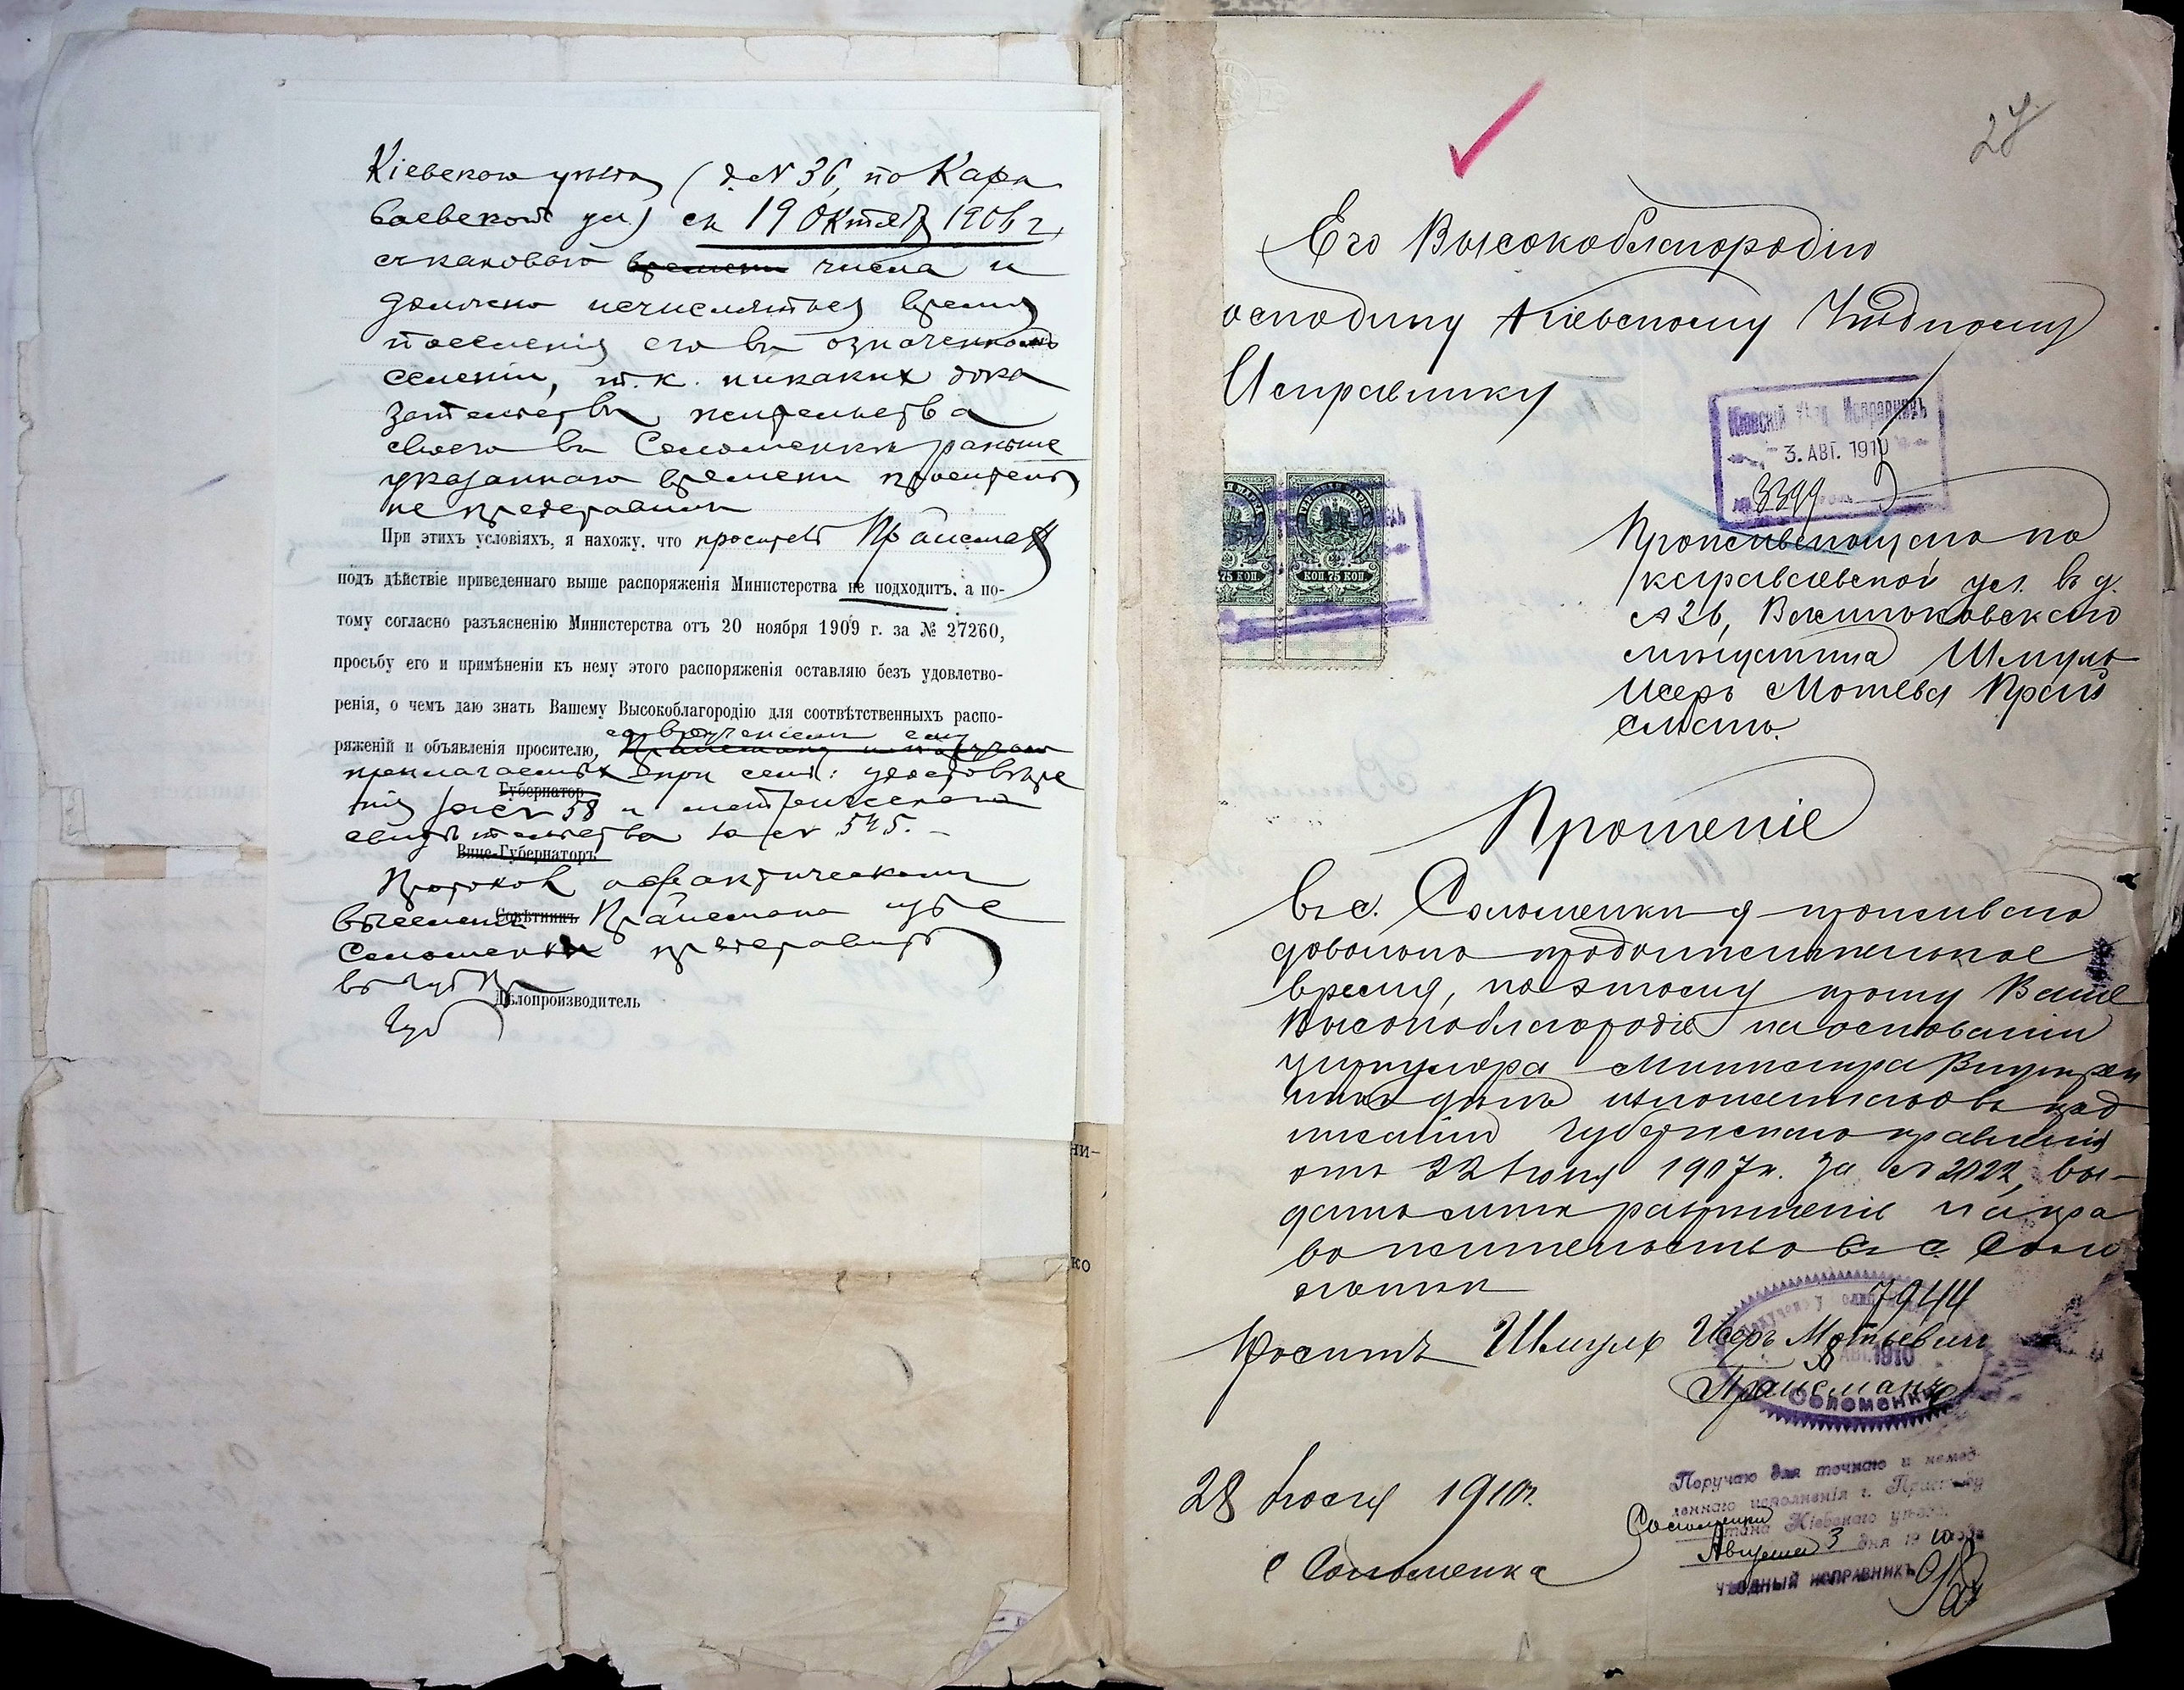 Кіевскаго уѣзда (д. № 36, по Кара
ваевской ул.) съ 19 Октяб 1906 г,
съ каковаго времени числа и
должно исчисляться время
поселенія его въ означенномъ
селеніи, т.к. никакихъ дока
зательствъ жительства
своего въ Соломенкѣ раньше
указаннаго времени проситель
не представилъ
При этихъ условіяхъ, я нахожу, что проситель Прайсман
подъ дѣйствіе приведеннаго выше распоряженія Министерства не подходитъ, а по-
тому согласно разъясненію Министерства отъ 20 ноября 1909 г. за № 27260,
просьбу его и примѣненіи къ нему этого распоряженія оставляю безъ удовлетво-
ренія, о чемъ даю знать Вашему Высокоблагородію для соотвѣтственныхъ распо-
съ врученіемъ ему
ряженій и объявленія просителю,
прилагаемыхъ при семъ: удостовѣре
Губернаторъ
нія за № 58 и метрическаго
свидѣтельства за № 545. –
Вице-Губернаторъ
Протокол о фактическомъ
выселеніи Прайсмана изъ с
Совѣтникъ
Соломенки представить
въ Губ Пр
Дѣлопроизводитель
ни-
ко
27
Его Высокоблагородію
осподину Кіевскому Уѣздному
Исправнику
Кіевскій Уѣзд. Исправникъ
3. АВГ. 1910
№ 3399
75 КОП.
КОП. 75 КОП.
Проживающаго по
Караваевской ул. въ д.
№ 36, Васильковскаго
мѣщанина Шмуль
Исеръ Мотева Прайс
мана.
Прошеніе
Въ с. Соломенкѣ я проживаю
довольно продолжительное
время, поэтому прошу Ваше
Высокоблагородіе на основаніи
циркуляра Министра Внутрен
нихъ дѣлъ изложеннаго въ пред
писаніи Губернскаго правленія
отъ 22 Іюня 1907 г. за № 2022, вы-
дать мнѣ разрѣшеніе на пра
во жительство въ с. Соло
менкѣ
7944
Проситъ Шмуль Исеръ Мотьевичъ
Прайсманъ
1910
СОЛОМЕНК
28 Іюля 1910 г.
с Соломенка
Поручаю для точнаго и немед-
леннаго исполненія г. Приставу
Соломенки
стана Кіевскаго уѣзда.
Августа 3 дня 1910 года
УѢЗДНЫЙ ИСПРАВНИКЪ